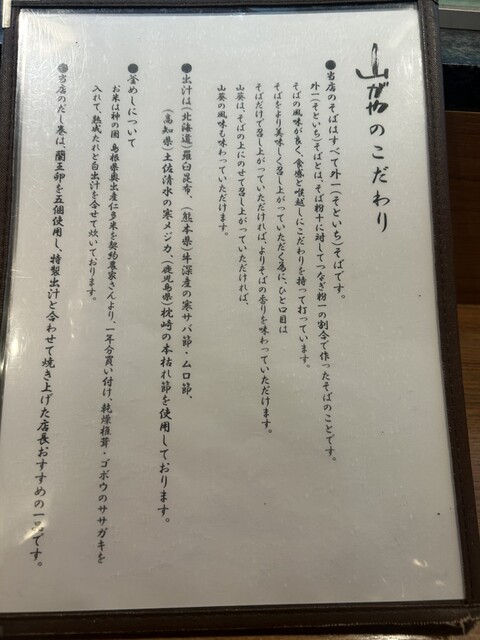 山がやのこだわり
●当店のそばはすべて外一(そといち)そばです。
外一(そといち)そばとは、そば粉十に対してつなぎ粉一の割合で作ったそばのことです。
そばの風味が良く、食感と喉越しにこだわりを持って打っています。
そばをより美味しく召し上がっていただく為に、ひと口目は
そばだけで召し上がっていただければ、よりそばの香りを味わっていただけます。
山葵は、そばの上にのせて召し上がっていただければ、
山葵の風味も味わっていただけます。
●出汁は(北海道)羅臼昆布、(熊本県)牛深産の寒サバ節・ムロ節、
(高知県)土佐清水の寒メジカ、(鹿児島県)枕崎の本枯れ節を使用しております。
●釜めしについて
お米は神の国 島根県奥出産仁多米を契約農家さんより、一年分買い付け、乾燥椎茸・ゴボウのササガキを
入れて、熟成たれと白出汁を合せて炊いております。
●当店のだし巻は、蘭王卵を五個使用し、特製出汁と合わせて焼き上げた店長おすすめの一品です。